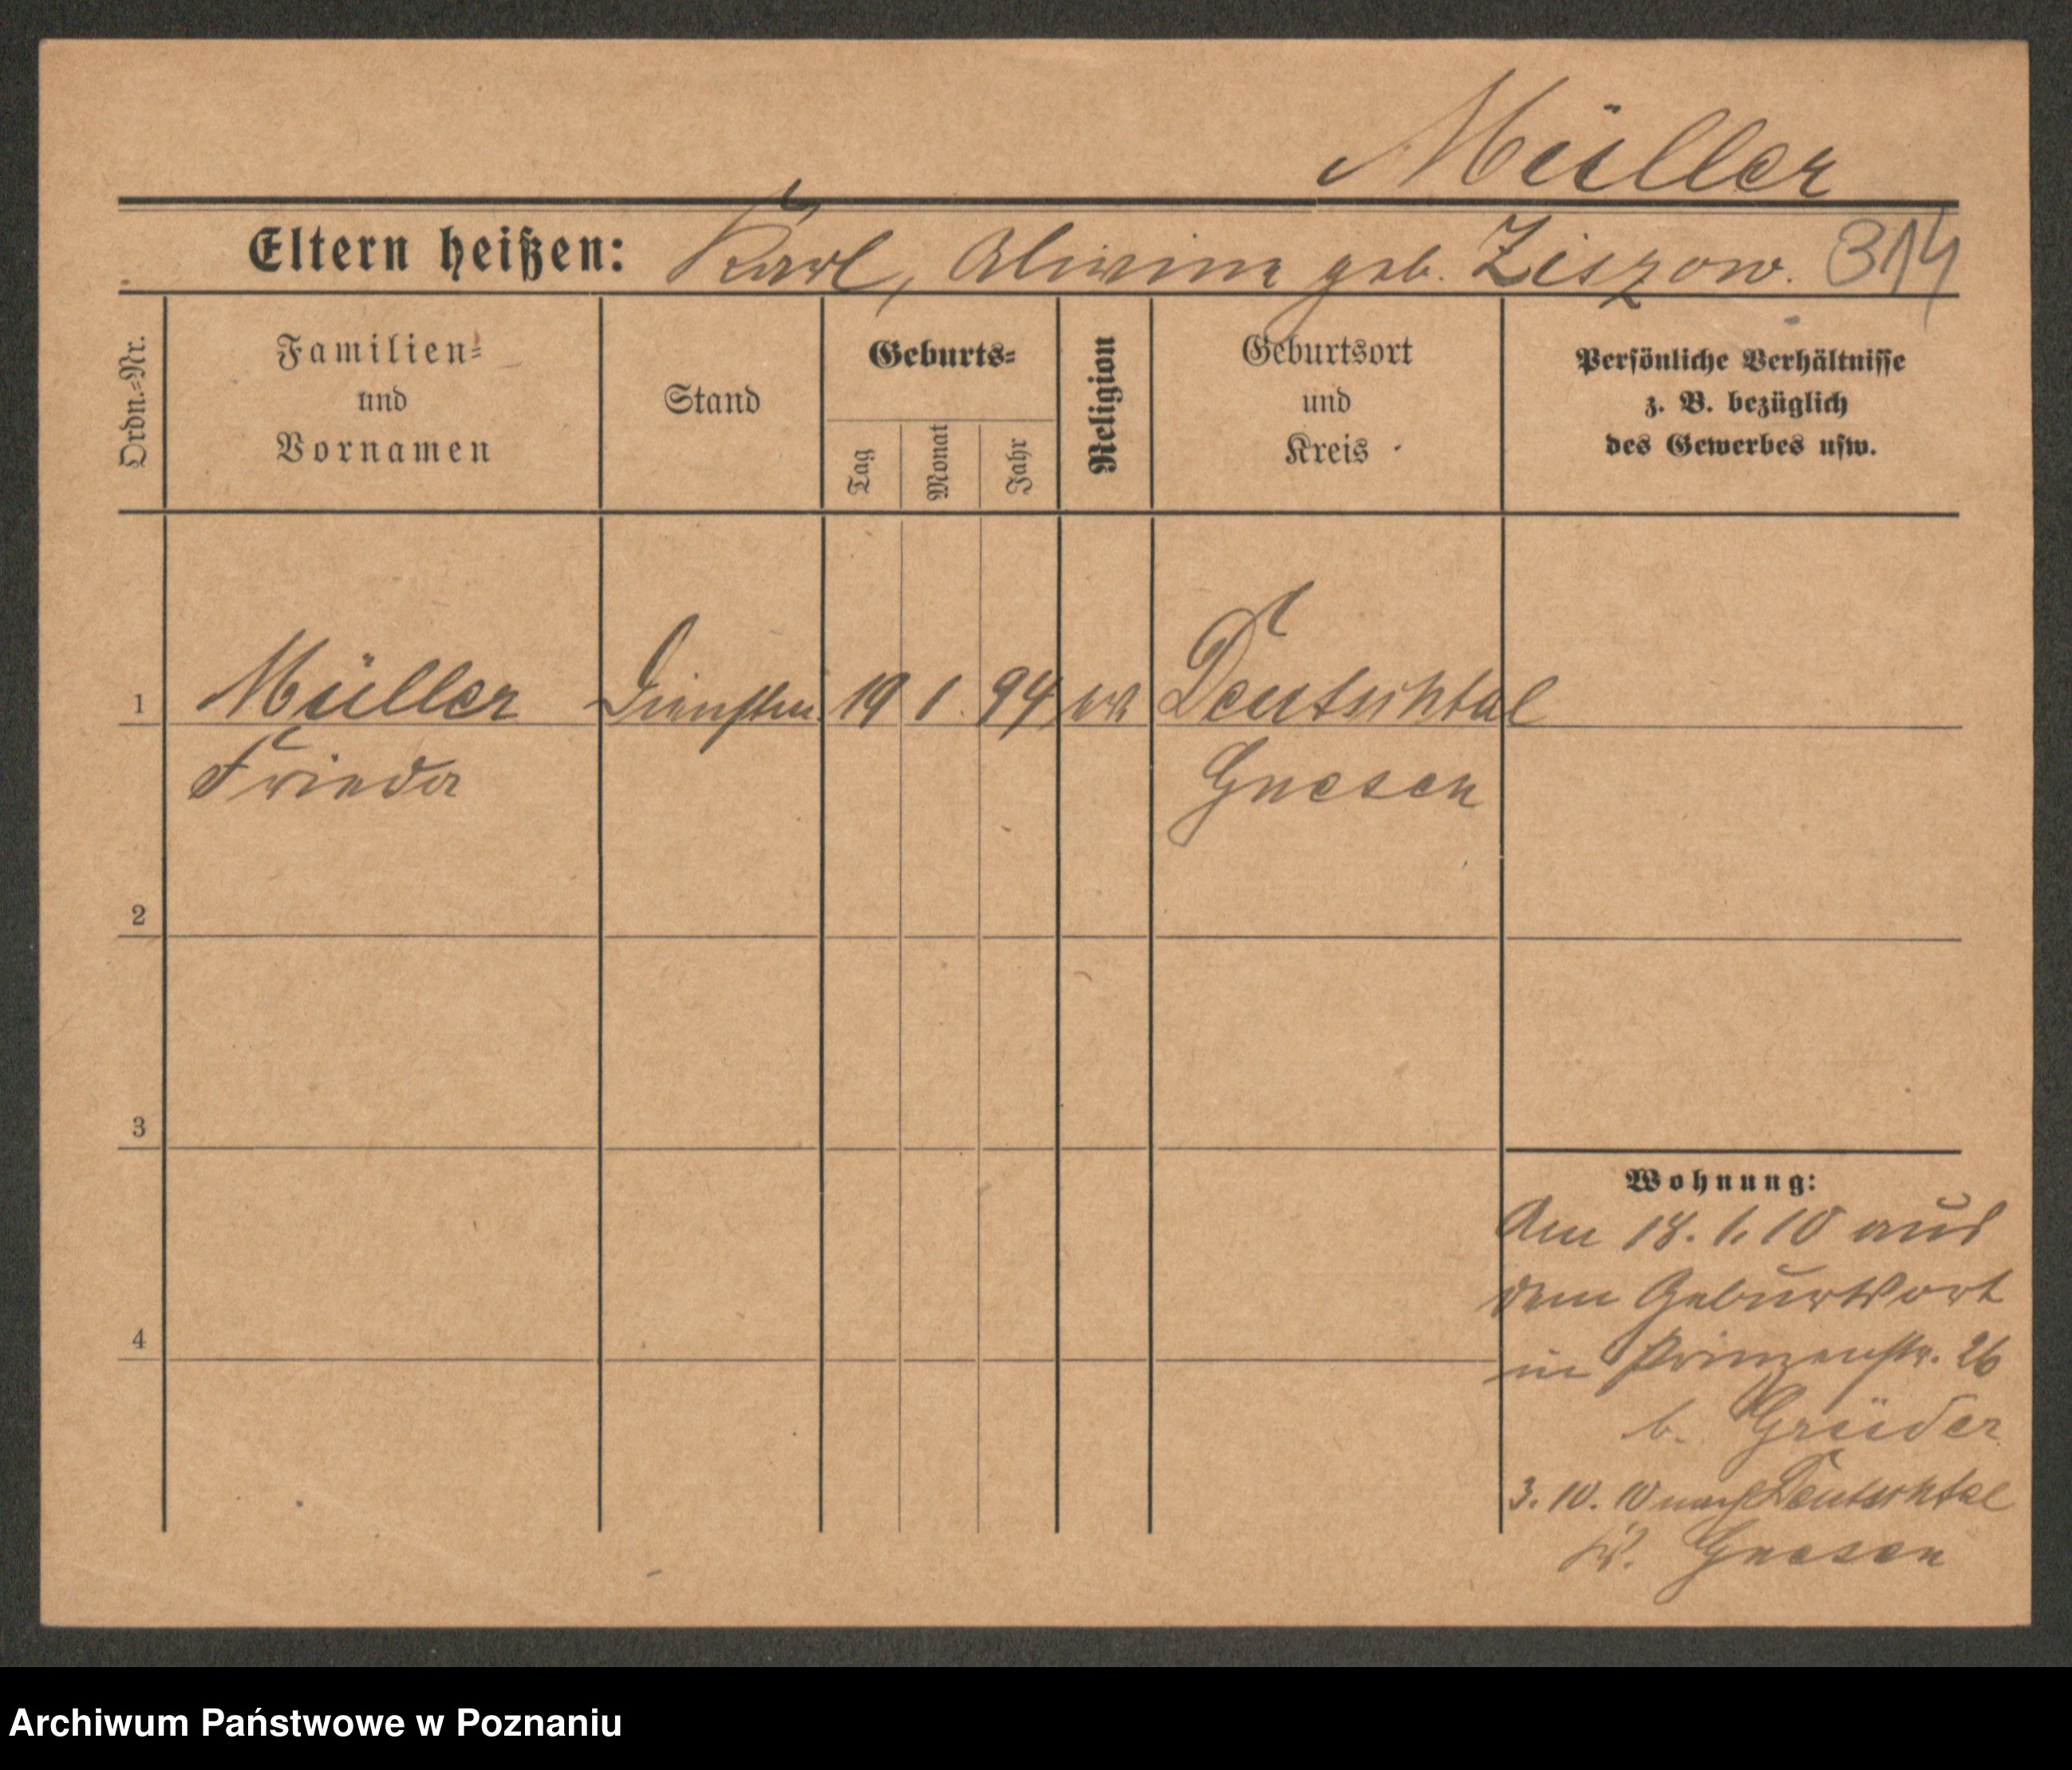 Müller
Eltern heißen: Karl, Alwine geb. Ziszow. 314
Ordn.=Nr.
Familien=
und
Vornamen
Stand
Geburts=
Tag
Monat
Jahr
Religion
Geburtsort
und
Kreis
Persönliche Verhältnisse
z. B. bezüglich
des Gewerbes usw.
1 Müller 19 1 94 Deutschtal
Frieda Gnesen
2
3
4
Wohnung:
Am 18. 1. 10 aus
dem Geburtsort
in Prinzenstr. 26
b. Grüder
3. 10. 10 nach Deutschtal
Gnesen
Archiwum Państwowe w Poznaniu